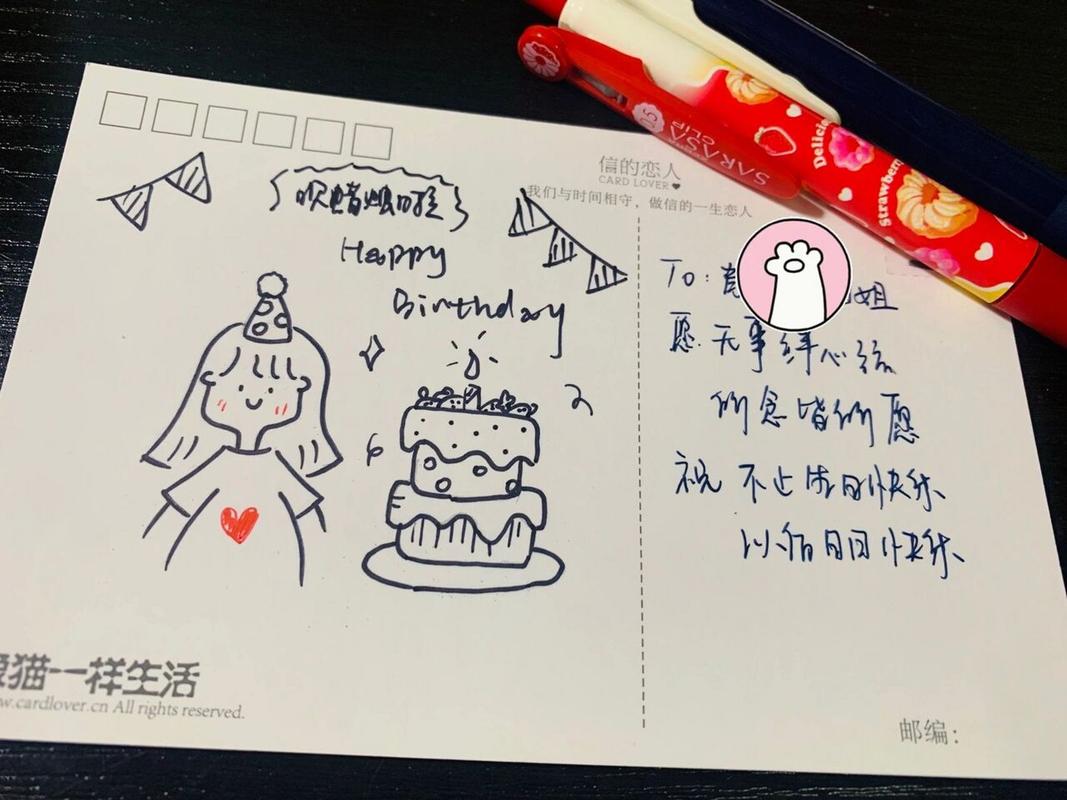 吹蜡烛啦
Happy
Birthday
信的恋人
CARD LOVER
我们与时间相守，做信的一生恋人
To: 姐
愿 无事绊心弦
所念皆所愿
祝 不止生日快乐
以后日日快乐
像猫一样生活
w.cardlover.cn All rights reserved.
邮编：
SARASA
CLIP
0.5
Delicio
strawberr